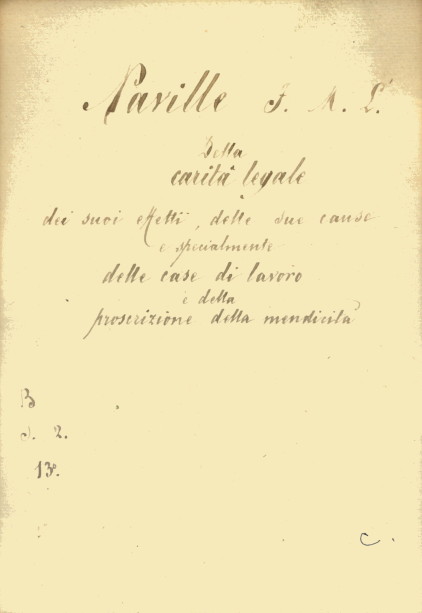 Naville F. M. L.
Della
carità legale
dei suoi effetti, delle sue cause
e specialmente
delle case di lavoro
e della
proscrizione della mendicità
B
J. 2.
13.
C.